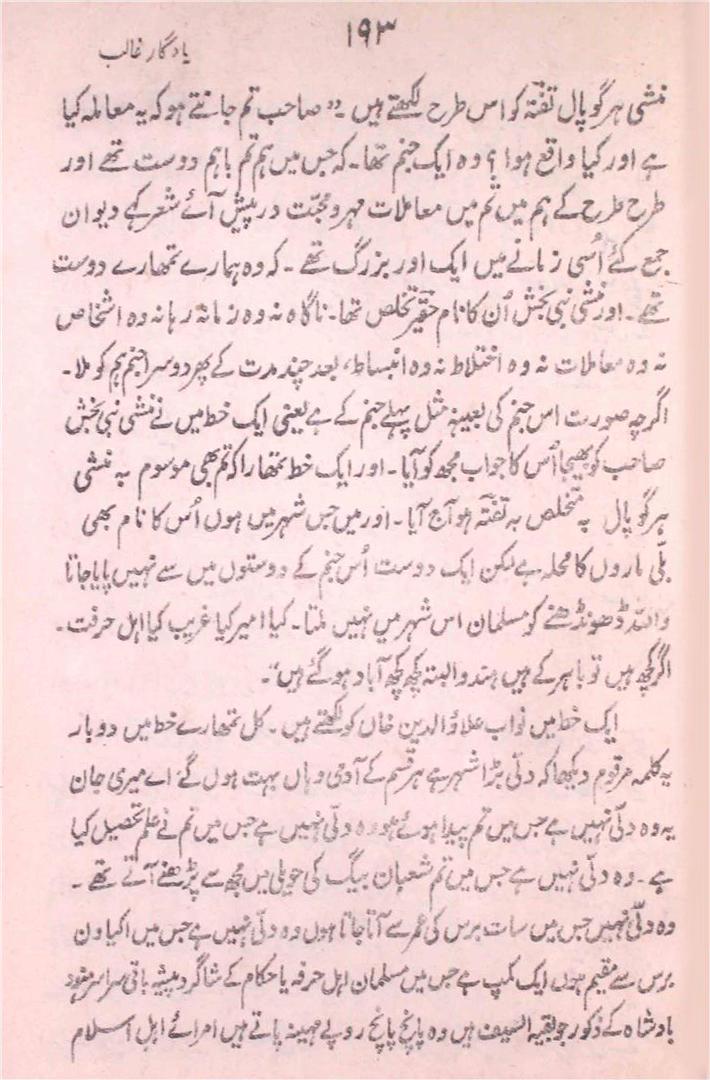 ۱۹۳
یادگار غالب
منشی ہرگوپال تفتہؔ کو اس طرح لکھتے ہیں۔ "صاحب تم جانتے ہو کہ یہ معاملہ کیا
ہے اور کیا واقع ہوا؟ وہ ایک جنم تھا۔ کہ جس میں ہم تم باہم دوست تھے اور
طرح طرح کے ہم میں تم میں معاملات مہر و محبّت درپیش آئے شعر کہے دیوان
جمع کئے اُسی زمانے میں ایک اور بزرگ تھے۔ کہ وہ ہمارے تمھارے دوست
تھے۔ اور منشی نبی بخش اُن کا نام حقیرؔ تخلص تھا۔ ناگاہ نہ وہ زمانہ رہا نہ وہ اشخاص
نہ وہ معاملات نہ وہ اختلاط نہ وہ انبساط، بعد چند مدت کے پھر دوسرا جنم ہم کو ملا۔
اگرچہ صورت اس جنم کی بعینہٖ مثل پہلے جنم کے ہے یعنی ایک خط میں نے منشی نبی بخش
صاحب کو بھیجا اُس کا جواب مجھ کو آیا۔ اور ایک خط تمھارا کہ تم بھی موسوم بہ منشی
ہرگوپال متخلص بہ تفتہؔ ہو آج آیا۔ اور میں جس شہر میں ہوں اُس کا نام بھی
بلّی ماروں کا محلہ ہے لیکن ایک دوست اُس جنم کے دوستوں میں سے نہیں پایا جاتا
واللہ ڈھونڈھنے کو مسلمان اس شہر میں نہیں ملتا۔ کیا امیر کیا غریب کیا اہل حرفت۔
اگر کچھ ہیں تو باہر کے ہیں ہندو البتہ کچھ کچھ آباد ہو گئے ہیں"۔
ایک خط میں نواب علاؤالدین خاں کو لکھتے ہیں۔ کل تمھارے خط میں دو بار
یہ کلمہ مرقوم دیکھا کہ دلّی بڑا شہر ہے ہر قسم کے آدمی وہاں بہت ہوں گے اے میری جان
یہ وہ دلّی نہیں ہے جس میں تم پیدا ہوئے ہو وہ دلّی نہیں ہے جس میں تم نے علم تحصیل کیا
ہے۔ وہ دلّی نہیں ہے جس میں تم شعبان بیگ کی حویلی میں مجھ سے پڑھنے آتے تھے۔
وہ دلّی نہیں جس میں سات برس کی عمر سے آتا جاتا ہوں وہ دلّی نہیں ہے جس میں اکیاون
برس سے مقیم ہوں ایک کمپ ہے جس میں مسلمان اہل حرفہ یا حکام کے شاگرد پیشہ باقی سراسر ہنود
بادشاہ کے ذکور جو بقیۃ السیف ہیں وہ پانچ پانچ روپے مہینہ پاتے ہیں امرائے اہل اسلام